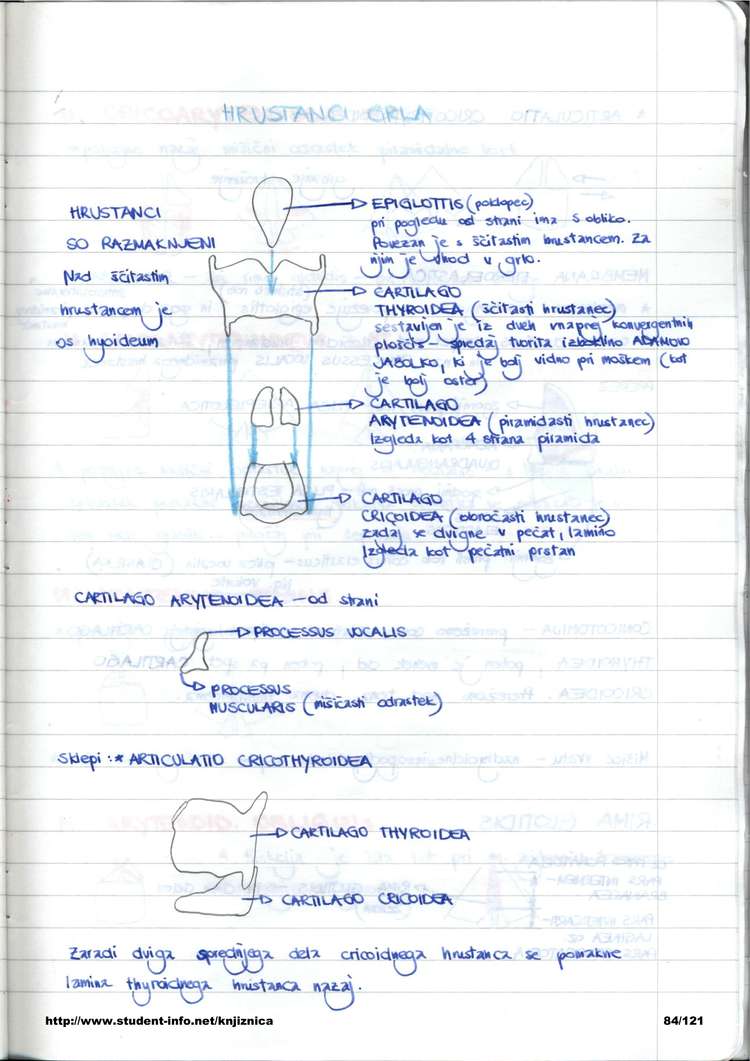 HRUSTANCI GRLA
HRUSTANCI
SO RAZMAKNJENI
Nad ščitastim
hrustancem je
os hyoideum
EPIGLOTTIS (poklopec)
pri pogledu od strani ima S obliko.
Povezan je s ščitastim hrustancem. Za
njim je vhod v grlo.
CARTILAGO
THYROIDEA (ščitasti hrustanec)
sestavljen je iz dveh vnaprej konvergentnih
plošč – spredaj tvorita izboklino ADAMOVO
JABOLKO, ki je bolj vidno pri moškem (kot
je bolj oster)
CARTILAGO
ARYTENOIDEA (piramidasti hrustanec)
Izgleda kot 4 strana piramida
CARTILAGO
CRICOIDEA (obročasti hrustanec)
zadaj se dvigne v pečat, lamino
Izgleda kot pečatni prstan
CARTILAGO ARYTENOIDEA – od strani
PROCESSUS VOCALIS
PROCESSUS
MUSCULARIS (mišičasti odrastek)
Sklepi : * ARTICULATIO CRICOTHYROIDEA
CARTILAGO THYROIDEA
CARTILAGO CRICOIDEA
Zaradi dviga sprednjega dela cricoidnega hrustanca se pomakne
lamina thyroidnega hrustanca nazaj.
http://www.student-info.net/knjiznica
84/121